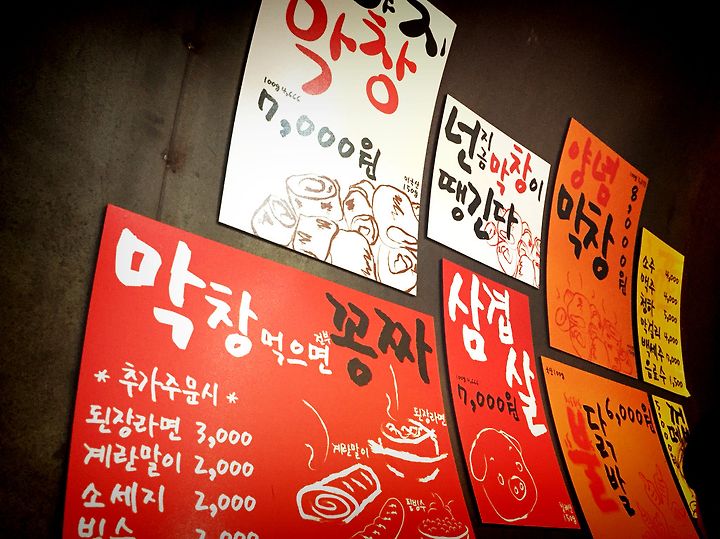 막창
100g 4,666
7,000원
150g
넌 지금
막창이
땡긴다
양념
막창
8,000원
소주 4,000
맥주 4,000
청하 5,000
막걸리 4,000
백세주 7,000
음료수 1,500
막창 먹으면 전부 꽁짜
* 추가주문시 *
된장라면 3,000
계란말이 2,000
소세지 2,000
빙수
된장라면
계란말이
팥빙수
삼겹살
7,000원
150g
불닭발
6,000원